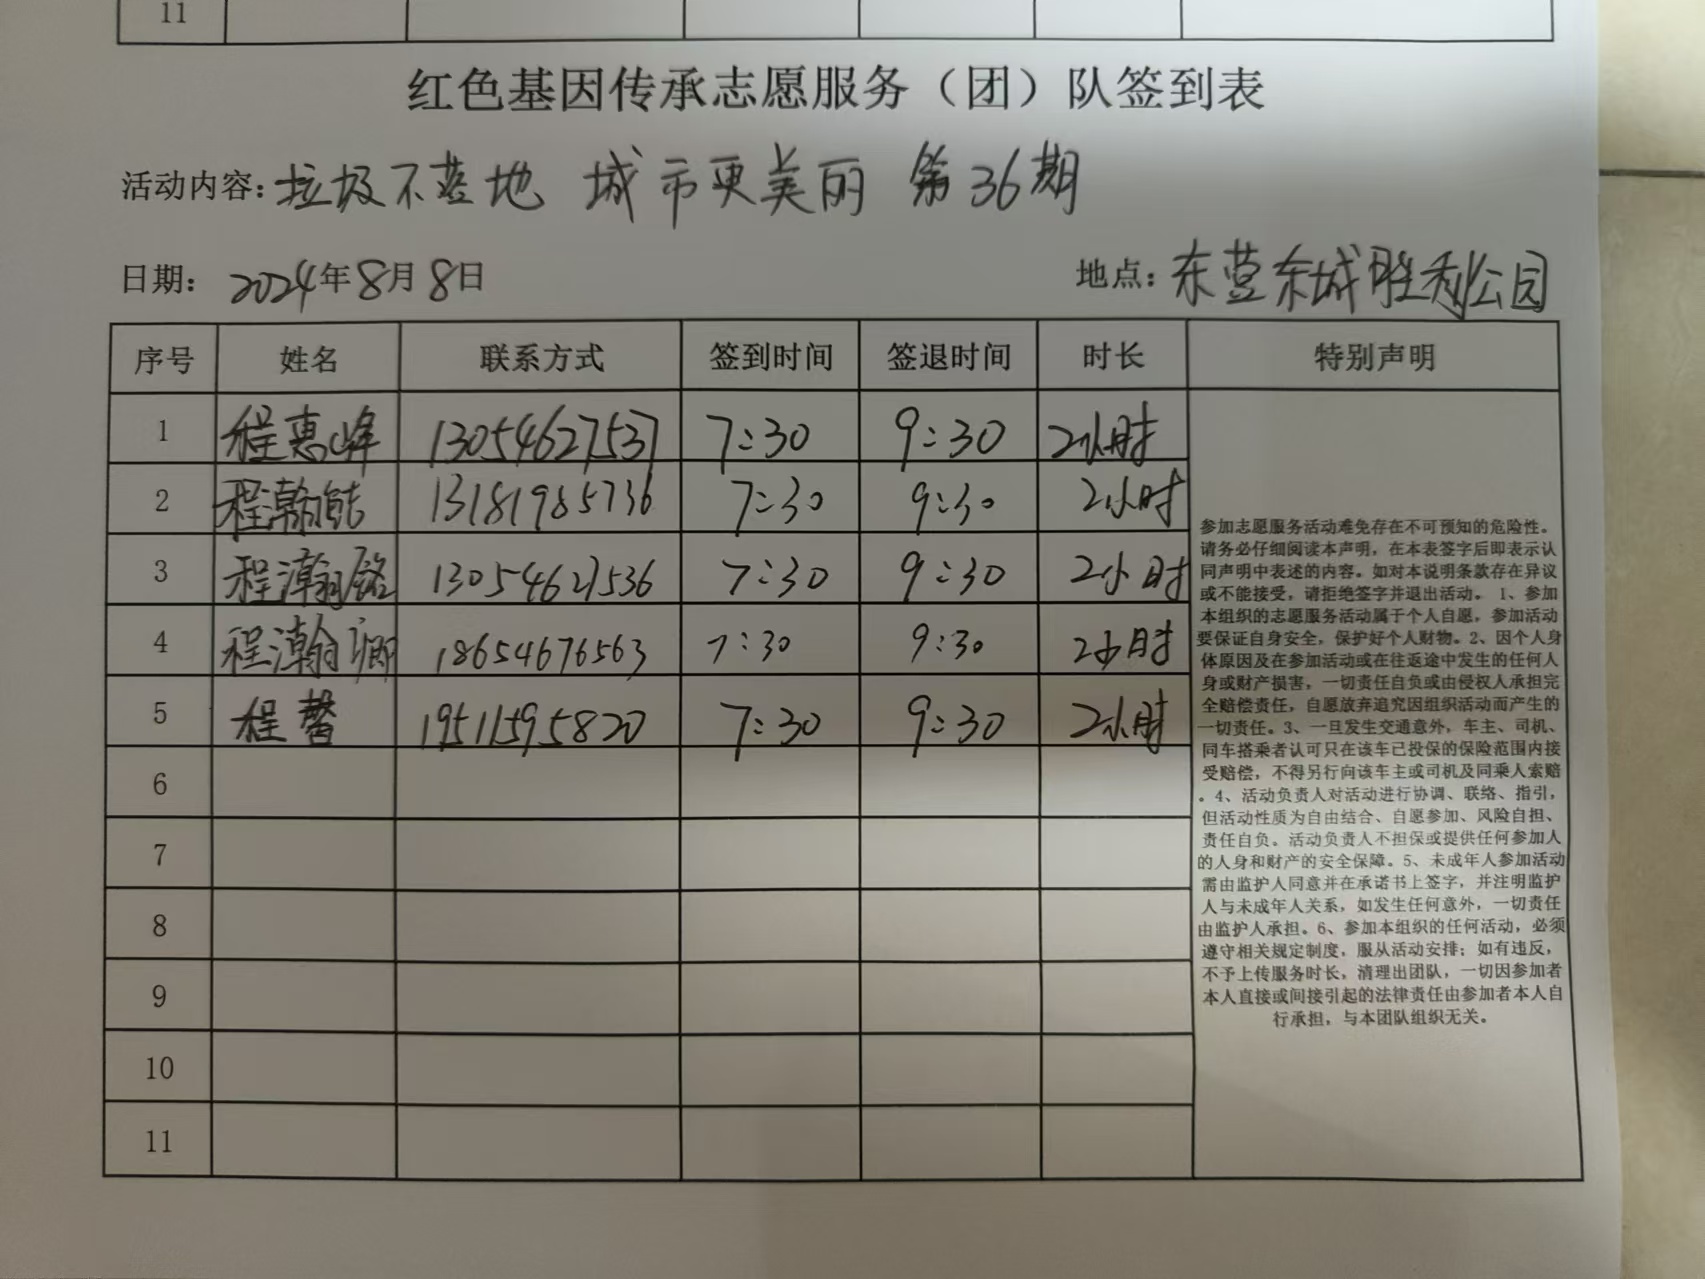 11
红色基因传承志愿服务（团）队签到表
活动内容：垃圾不落地 城市更美丽 第36期
日期：2024年8月8日 地点：东营东城胜利公园
序号 姓名 联系方式 签到时间 签退时间 时长 特别声明
1 程惠峰 13054627537 7:30 9:30 2小时
2 程瀚 13181985736 7:30 9:30 2小时
3 程瀚铭 13054627536 7:30 9:30 2小时
4 程瀚卿 18654676563 7:30 9:30 2小时
5 程馨 19511595820 7:30 9:30 2小时
6
7
8
9
10
11
参加志愿服务活动难免存在不可预知的危险性。
请务必仔细阅读本声明，在本表签字后即表示认
同声明中表述的内容。如对本说明条款存在异议
或不能接受，请拒绝签字并退出活动。 1、参加
本组织的志愿服务活动属于个人自愿，参加活动
要保证自身安全，保护好个人财物。2、因个人身
体原因及在参加活动或在往返途中发生的任何人
身或财产损害，一切责任自负或由侵权人承担完
全赔偿责任，自愿放弃追究因组织活动而产生的
一切责任。3、一旦发生交通意外，车主、司机、
同车搭乘者认可只在该车已投保的保险范围内接
受赔偿，不得另行向该车主或司机及同乘人索赔
。4、活动负责人对活动进行协调、联络、指引，
但活动性质为自由结合、自愿参加、风险自担、
责任自负。活动负责人不担保或提供任何参加人
的人身和财产的安全保障。5、未成年人参加活动
需由监护人同意并在承诺书上签字，并注明监护
人与未成年人关系，如发生任何意外，一切责任
由监护人承担。6、参加本组织的任何活动，必须
遵守相关规定制度，服从活动安排；如有违反，
不予上传服务时长，清理出团队，一切因参加者
本人直接或间接引起的法律责任由参加者本人自
行承担，与本团队组织无关。